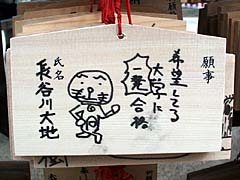 願事
希望してる
大学に
一発合格
氏名
長谷川大地